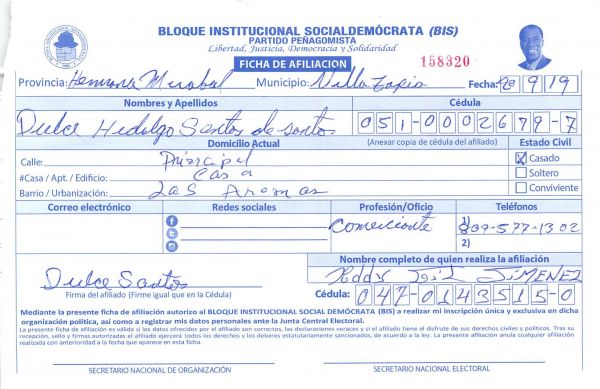 BLOQUE INSTITUCIONAL SOCIALDEMÓCRATA (BIS)
PARTIDO PEÑAGOMISTA
Libertad, Justicia, Democracia y Solidaridad
FICHA DE AFILIACION
158320
Provincia: Hermana Mirabal Municipio: Villa Tapia Fecha: 9 19
Nombres y Apellidos Cédula
Dulce Hidalgo Santos de Santos 051-0002679-7
Domicilio Actual (Anexar copia de cédula del afiliado) Estado Civil
Calle: Principal X Casado
#Casa / Apt. / Edificio: Casa Soltero
Barrio / Urbanización: Las Aromas Conviviente
Correo electrónico Redes sociales Profesión/Oficio Teléfonos
Comerciante 1) 809-577-1302
2)
Nombre completo de quien realiza la afiliación
Dulce Santos José JIMENEZ
Firma del afiliado (Firme igual que en la Cédula) Cédula: 047-0143515-0
Mediante la presente ficha de afiliación autorizo al BLOQUE INSTITUCIONAL SOCIAL DEMÓCRATA (BIS) a realizar mi inscripción única y exclusiva en dicha
organización política, así como a registrar mis datos personales ante la Junta Central Electoral.
La presente ficha de afiliación es válida si los datos ofrecidos por el afiliado son correctos, las declaraciones veraces y si el afiliado tiene el disfrute de sus derechos civiles y políticos. Tras su
recepción, sello y firmas autorizadas el afiliado ejercerá todos los derechos y los deberes estatutariamente sancionados, de acuerdo a la ley. La presente afiliación anula cualquier afiliación
realizada con anterioridad a la fecha que aparece en esta ficha.
SECRETARIO NACIONAL DE ORGANIZACIÓN SECRETARIO NACIONAL ELECTORAL